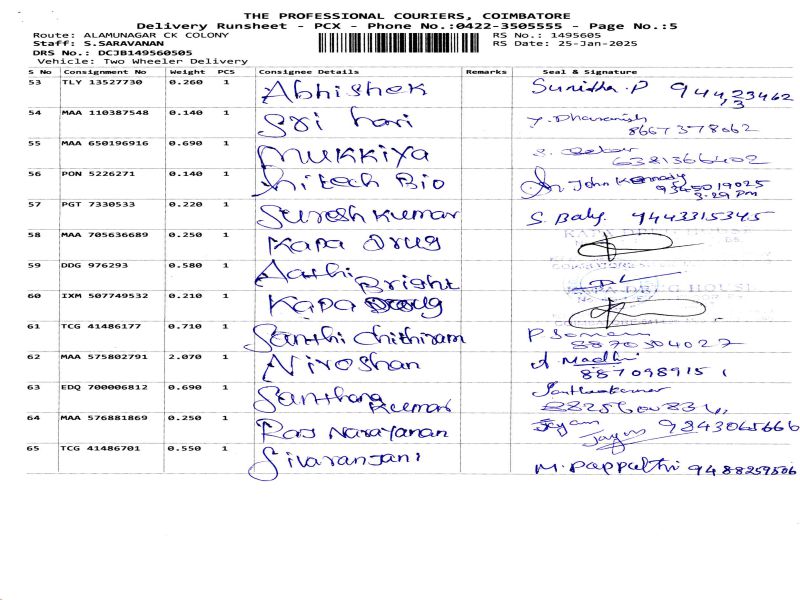 THE PROFESSIONAL COURIERS, COIMBATORE
Delivery Runsheet - PCX - Phone No.:0422-3505555 - Page No.:5
Route: ALAMUNAGAR CK COLONY RS No.: 1495605
Staff: S.SARAVANAN RS Date: 25-Jan-2025
DRS No.: DCJB149560505
Vehicle: Two Wheeler Delivery
S No Consignment No Weight PCS Consignee Details Remarks Seal & Signature
53 TLY 13527730 0.260 1 Abhishek
54 MAA 110387548 0.140 1 Sri hari 8667378062
55 MAA 650196916 0.690 1 Mukkiya 6381366402
56 PON 5226271 0.140 1 hitech Bio John Kennady 9345019025
3-29 Pm
57 PGT 7330533 0.220 1 Suresh Kumar S. Baby. 9443315345
58 MAA 705636689 0.250 1 Kapa Drug
KAPA DRUG HOUSE
59 DDG 976293 0.580 1 Aathi Bright
60 IXM 507749532 0.210 1 Kapa Drug
KAPA DRUG HOUSE
61 TCG 41486177 0.710 1 Santhi Chithiram 8870304027
62 MAA 575802791 2.070 1 Niroshan Madhi
887098915 1
63 EDQ 700006812 0.690 1 Santhana Kumar
64 MAA 576881869 0.250 1 Raj Narayanan Jayan 9843065666
Jayan
65 TCG 41486701 0.550 1 Sivaranjani M. Pappathi 9488259506